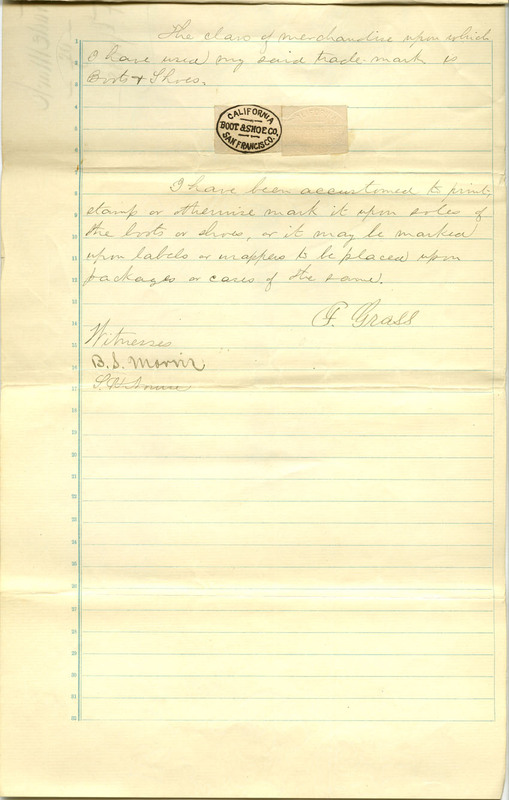 The class of merchandise upon which
I have used my said trade-mark is
Boots & Shoes.
CALIFORNIA
BOOT & SHOE CO.
SAN FRANCISCO.
I have been accustomed to print,
stamp or otherwise mark it upon soles of
the boots or shoes, or it may be marked
upon labels or wrappers to be placed upon
packages or cases of the same.
F. Grass
Witnesses
B. S.